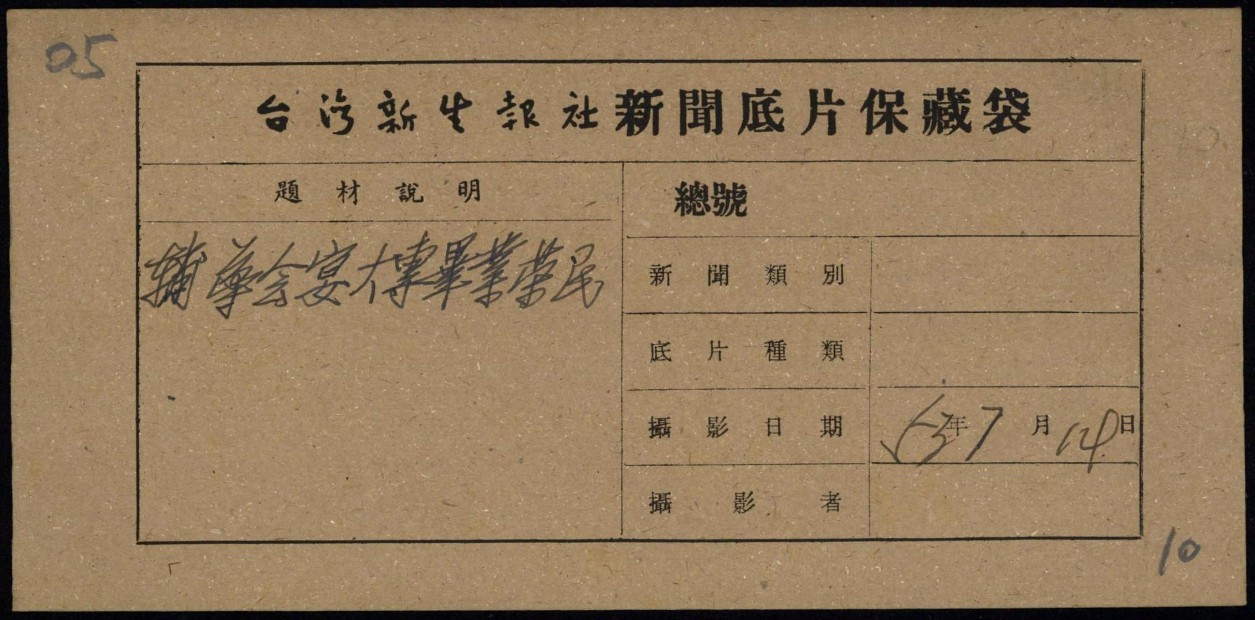 05
台灣新生報社新聞底片保藏袋
題材說明
輔導会宴大專畢業荣民
總號
新聞類別
底片種類
攝影日期 63年7月14日
攝影者
10